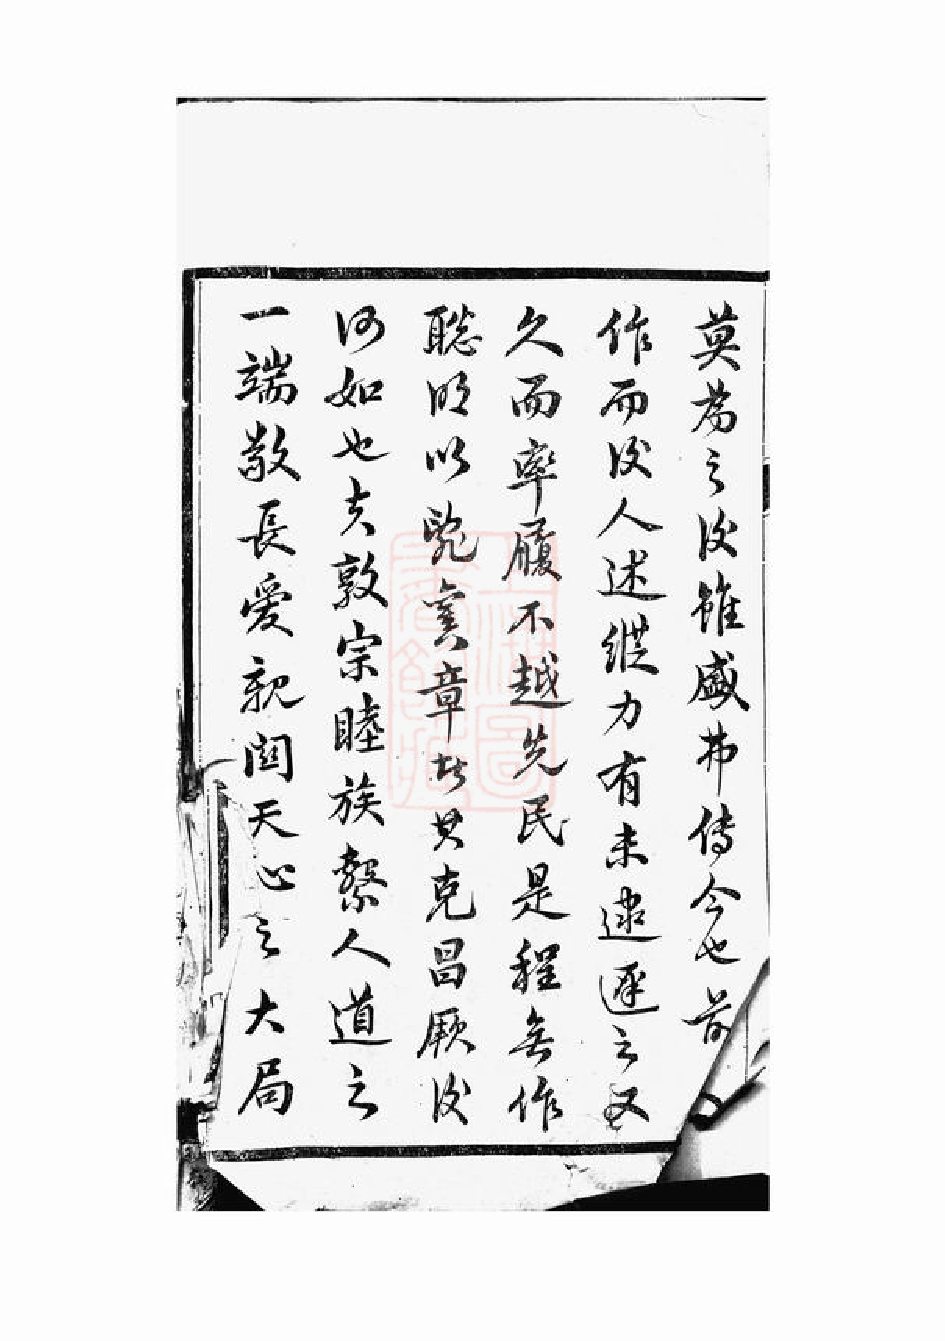 莫為之後雖盛弗傳今也前
作而後人述縱力有未逮遲之又
久而率履不越先民是程無作
聰明以亂舊章其克昌厥後
何如也夫敦宗睦族繫人道之
一端敬長愛親關天心之大局
上海圖